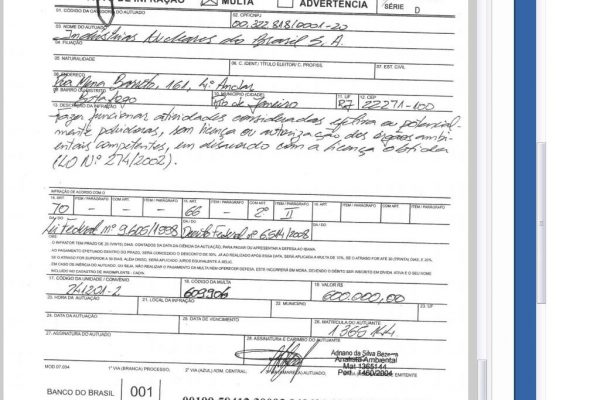 DE INFRAÇÃO MULTA ADVERTÊNCIA SÉRIE D
01. CÓDIGO DA 02. CPF/CNPJ
00.322.818/0001-20
03. NOME DO AUTUADO
Indústrias Nucleares do Brasil S.A.
04. FILIAÇÃO
05. NATURALIDADE 06. C. IDENT./ TÍTULO ELEITOR/ C. PROFISS. 07. EST. CIVIL
08. ENDEREÇO
Rua Mena Barreto, 161, 4º Andar
09. BAIRRO OU DISTRITO 10. MUNICÍPIO (CIDADE) 11. UF 12. CEP
Botafogo Rio de Janeiro RJ 22271-100
13. DESCRIÇÃO DA INFRAÇÃO
Fazer funcionar atividades consideradas efetiva ou potencial-
mente poluidoras, sem licença ou autorização dos órgãos ambi-
entais competentes, em desacordo com a licença obtida
(LO Nº 274/2002).
INFRAÇÃO DE ACORDO COM O
14. ART. ITEM / PARÁGRAFO COM ART. ITEM / PARÁGRAFO 15. ART. ITEM / PARÁGRAFO COM ART. ITEM / PARÁGRAFO 16. ART. ITEM / PARÁGRAFO COM ART. ITEM / PARÁGRAFO
70 - - - 66 - 2º II
DA / DO DA / DO DA / DO
Lei Federal nº 9.605/1998 Decreto Federal nº 6514/2008
OBS:
17. CÓDIGO DA UNIDADE / CONVÊNIO 18. CÓDIGO DA MULTA 19. VALOR R$
241201-2 609906 600.000,00
20. HORA DA AUTUAÇÃO 21. LOCAL DA INFRAÇÃO 22. MUNICÍPIO 23. UF
24. DATA DA AUTUAÇÃO 25. DATA DE VENCIMENTO 26. MATRÍCULA DO AUTUANTE
1365144
27. ASSINATURA DO AUTUADO 28. ASSINATURA E CARIMBO DO AUTUANTE
Adriano da Silva Bezerra
Analista Ambiental
Mat 1365144
Port. 1460/2004
MOD.07.034 1ª VIA (BRANCA) PROCESSO, 2ª VIA (AZUL) ADM. CENTRAL, EMITENTE
BANCO DO BRASIL 001